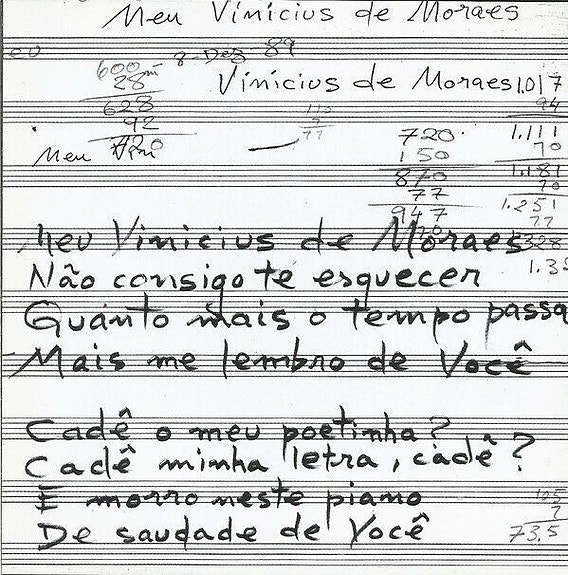 Meu Vinicius de Moraes
eu
8-Dez-89
Vinicius de Moraes
600
28
628
92
720
110
7
77
1.017
94
1.111
70
1.181
70
1.251
77
1328
1.3
720
150
870
77
947
Meu Vini
Meu Vinicius de Moraes
Não consigo te esquecer
Quanto mais o tempo passa
Mais me lembro de Você
Cadê o meu poetinha?
Cadê minha letra, cadê?
E morro neste piano
De saudade de Você
105
7
73.5